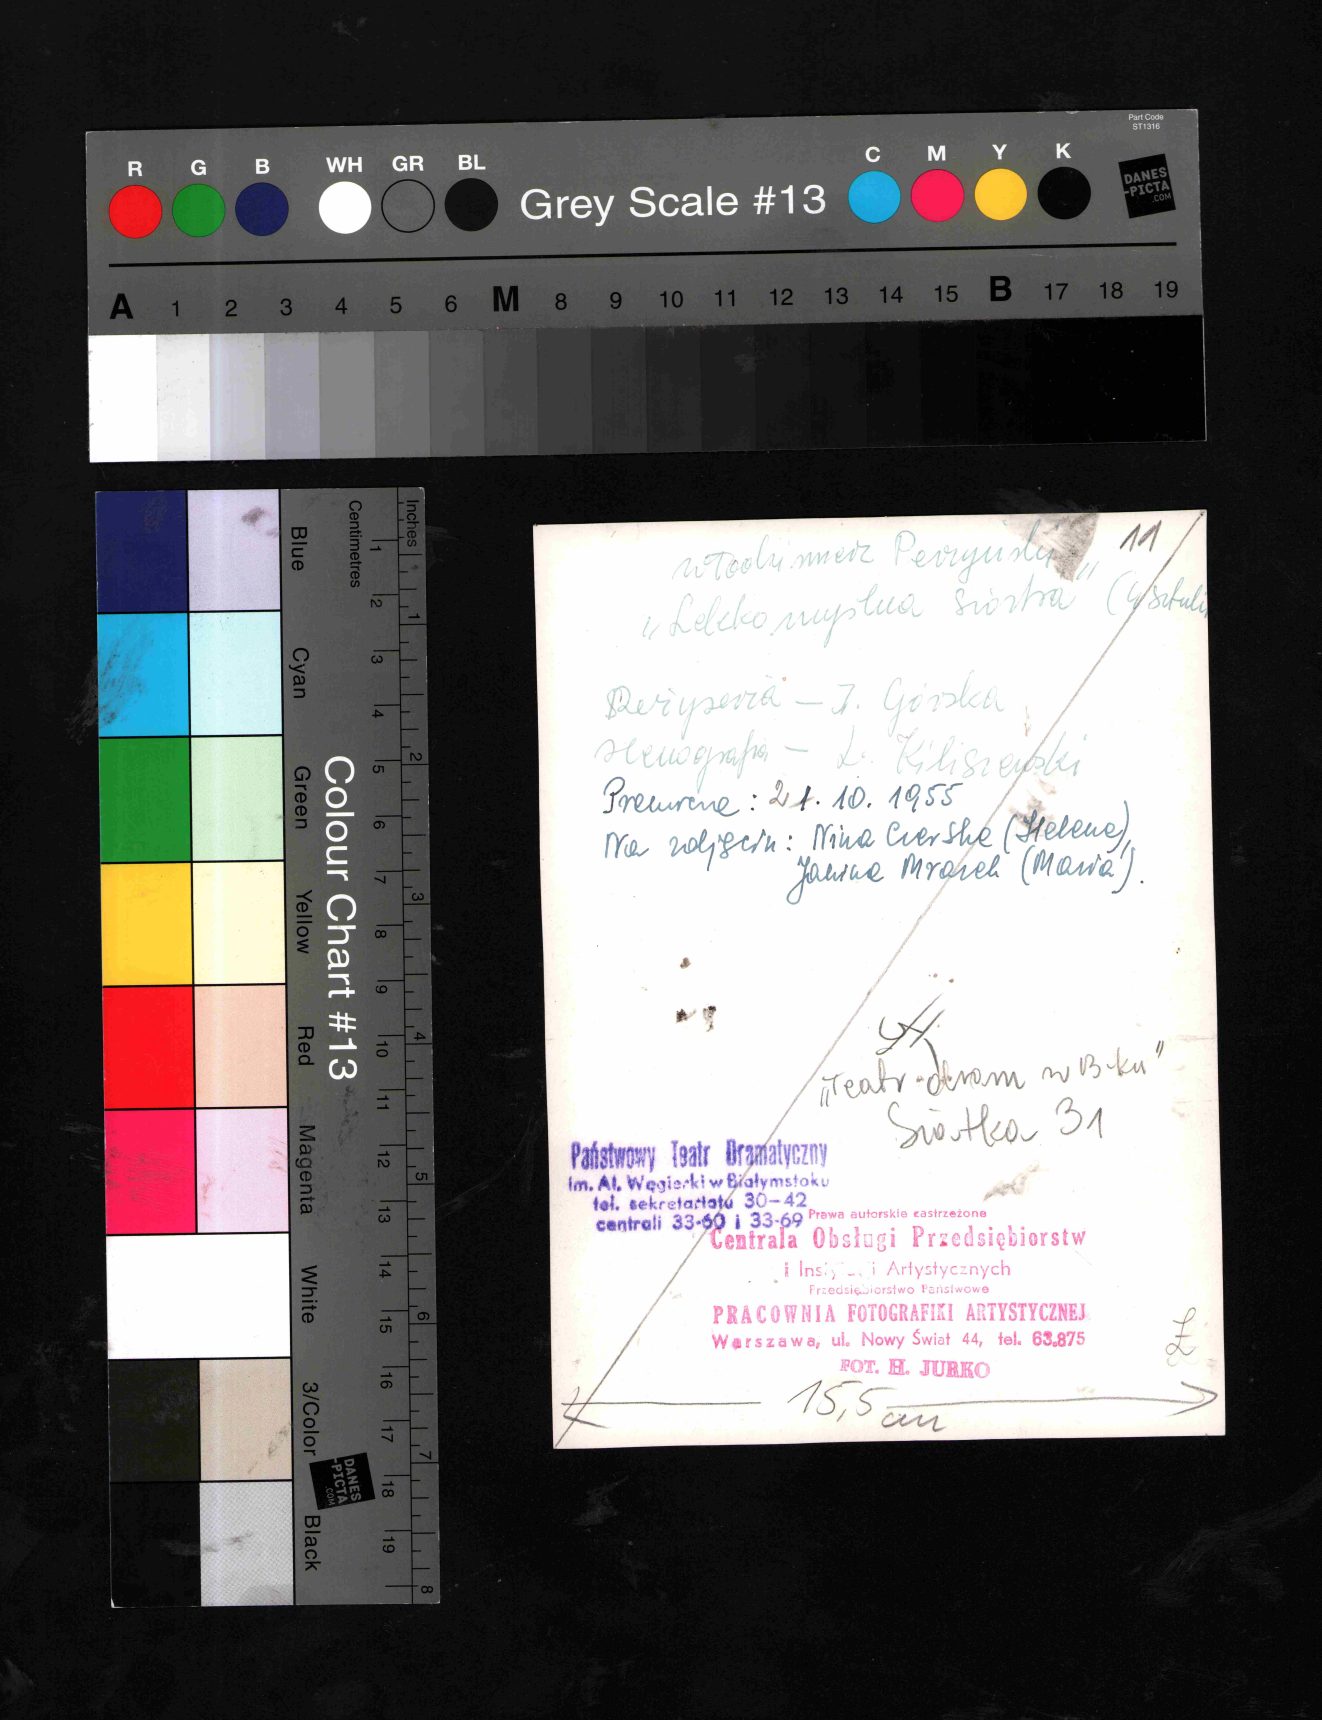 Part Code
ST1316
R G B WH GR BL
Grey Scale #13
C M Y K
DANES
-PICTA
.COM
A 1 2 3 4 5 6 M 8 9 10 11 12 13 14 15 B 17 18 19
Inches
Centimetres
1 2 3 4 5 6 7 8 9 10 11 12 13 14 15 16 17 18 19
1 2 3 4 5 6 7 8
Colour Chart #13
Blue
Cyan
Green
Yellow
Red
Magenta
White
3/Color
Black
DANES
-PICTA
.COM
11
Włodzimierz Perzyński
"Lekkomyślna siostra" (4
Reżyseria – I. Górska
Scenografia – Z. Kiliszewski
Premiera: 21. 10. 1955
Na zdjęciu: Nina Czerska (Helena),
Janina Mrazek (Maria).
"Teatr dram w B-ku"
Siatka 31
Państwowy Teatr Dramatyczny
im. Al. Węgierki w Białymstoku
tel. sekretariatu 30-42
centrali 33-60 i 33-69
Prawa autorskie zastrzeżone
Centrala Obsługi Przedsiębiorstw
i Instytucji Artystycznych
Przedsiębiorstwo Państwowe
PRACOWNIA FOTOGRAFIKI ARTYSTYCZNEJ
Warszawa, ul. Nowy Świat 44, tel. 63.875
FOT. H. JURKO
15,5 cm